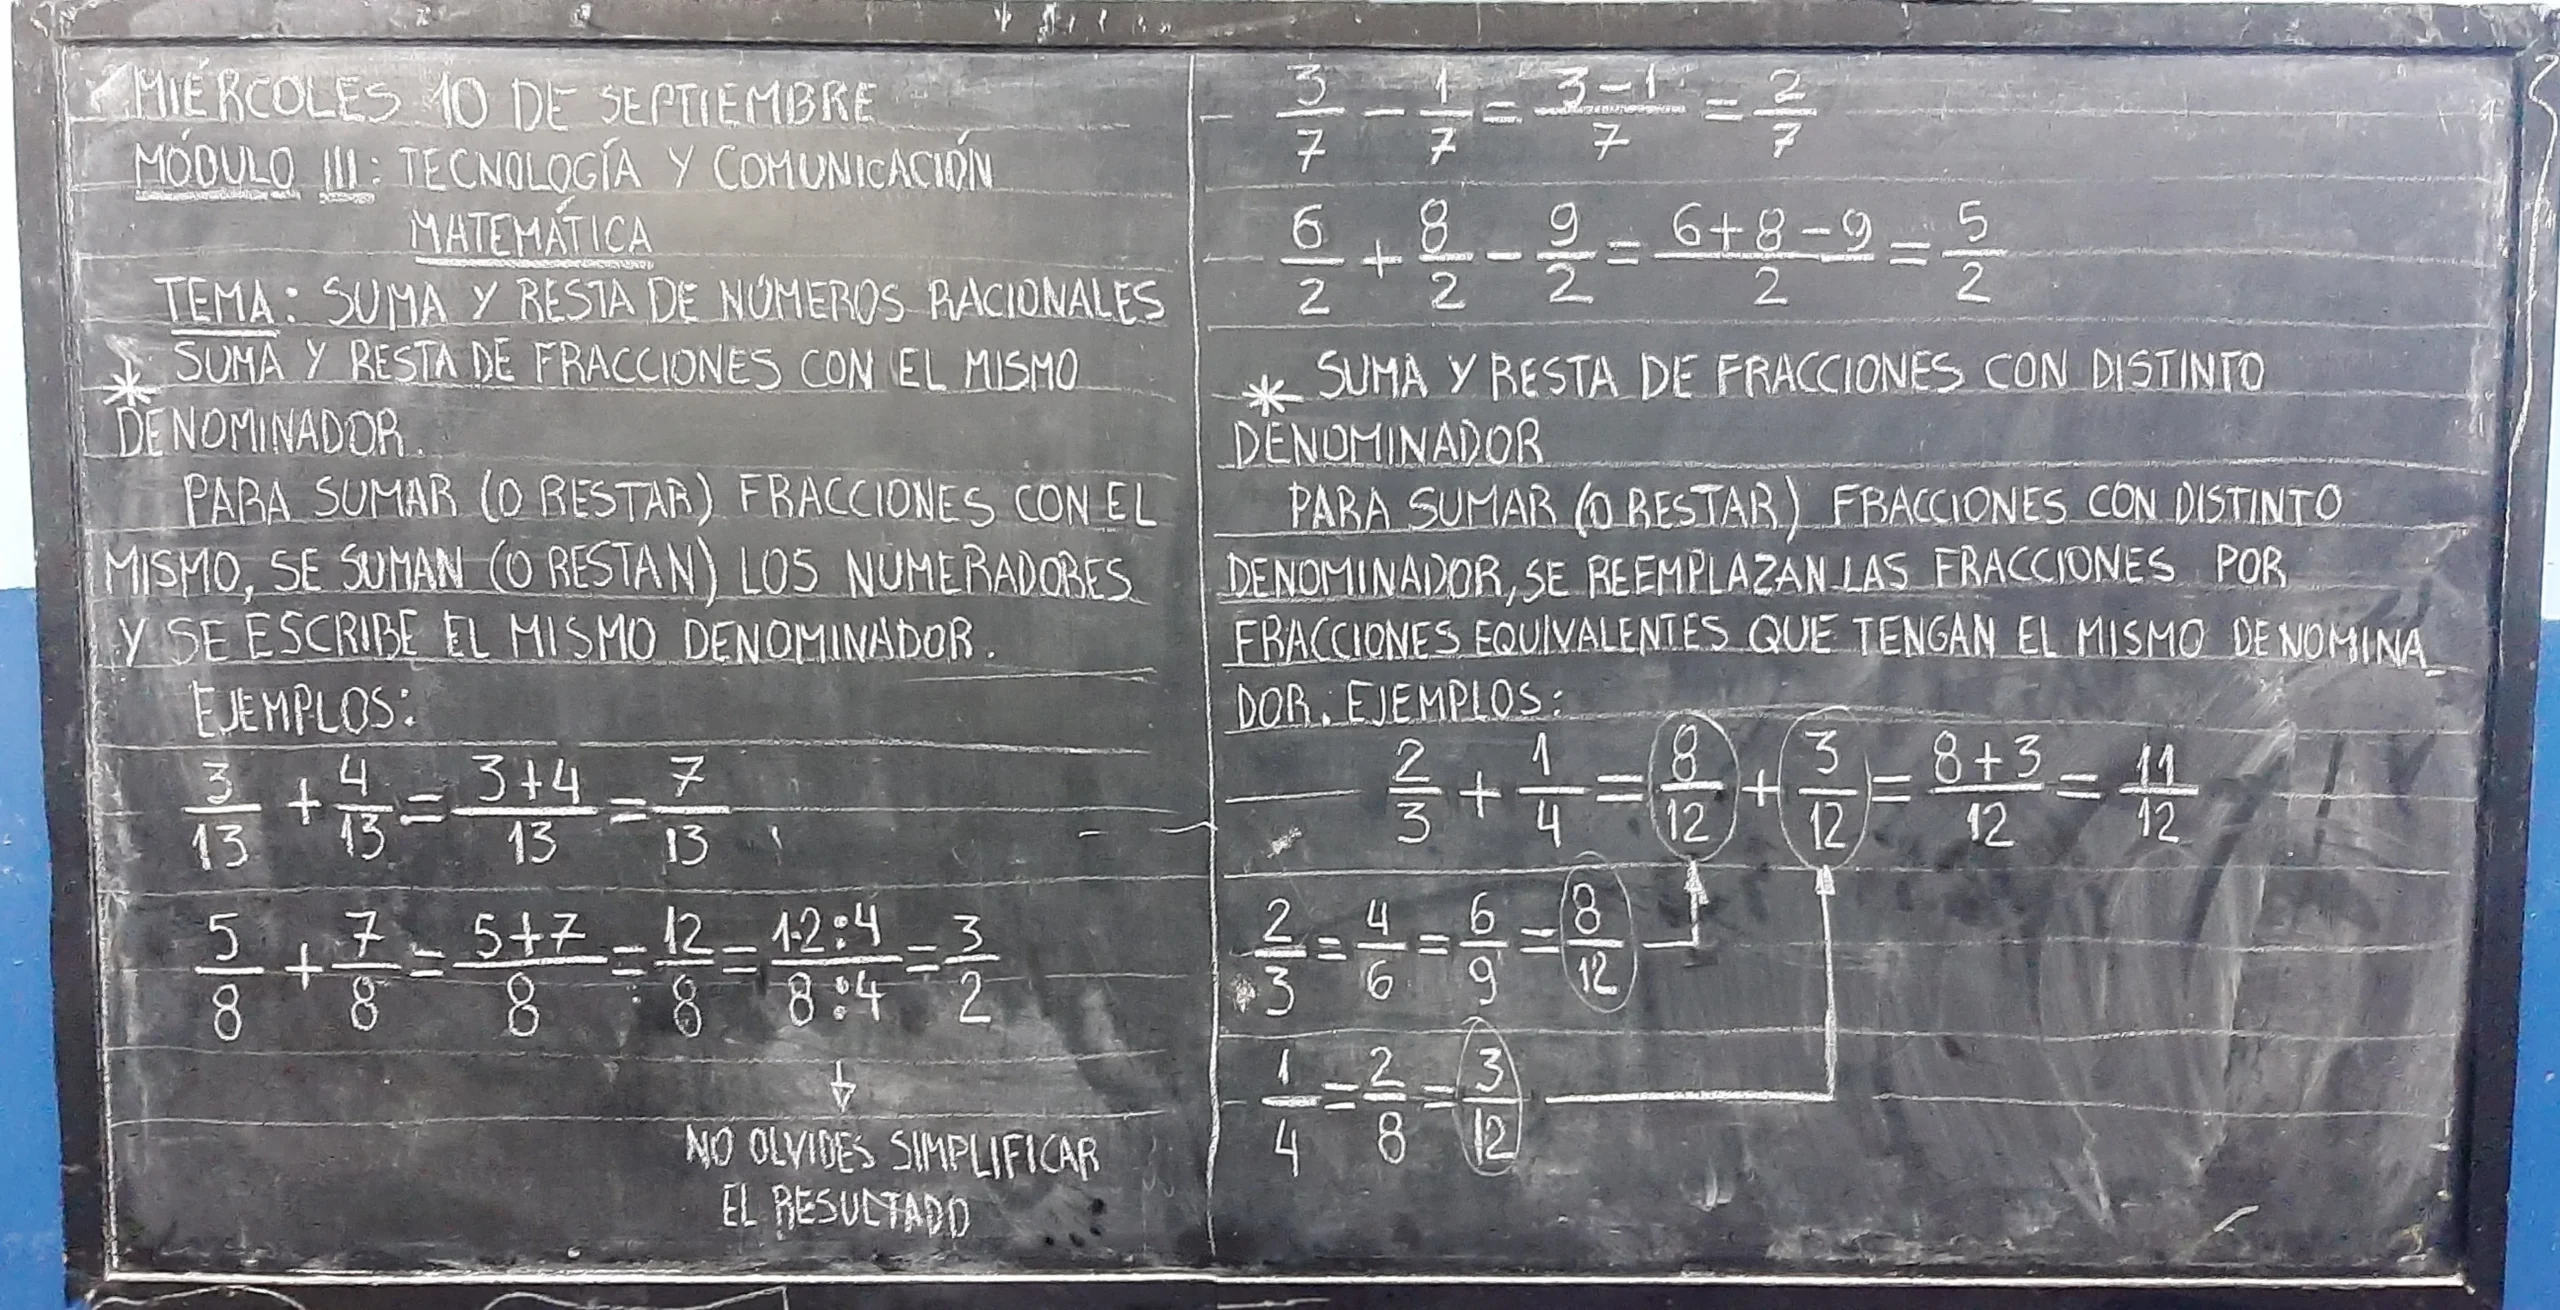 MIÉRCOLES 10 DE SEPTIEMBRE
MÓDULO III: TECNOLOGÍA Y COMUNICACIÓN
MATEMÁTICA
TEMA: SUMA Y RESTA DE NÚMEROS RACIONALES
* SUMA Y RESTA DE FRACCIONES CON EL MISMO
DENOMINADOR.
PARA SUMAR (O RESTAR) FRACCIONES CON EL
MISMO, SE SUMAN (O RESTAN) LOS NUMERADORES
Y SE ESCRIBE EL MISMO DENOMINADOR.
EJEMPLOS:
3/13 + 4/13 = 3+4/13 = 7/13
5/8 + 7/8 = 5+7/8 = 12/8 = 12:4/8:4 = 3/2
↓
NO OLVIDES SIMPLIFICAR
EL RESULTADO
3/7 - 1/7 = 3-1/7 = 2/7
6/2 + 8/2 - 9/2 = 6+8-9/2 = 5/2
* SUMA Y RESTA DE FRACCIONES CON DISTINTO
DENOMINADOR
PARA SUMAR (O RESTAR) FRACCIONES CON DISTINTO
DENOMINADOR, SE REEMPLAZAN LAS FRACCIONES POR
FRACCIONES EQUIVALENTES QUE TENGAN EL MISMO DENOMINA_
DOR. EJEMPLOS:
2/3 + 1/4 = 8/12 + 3/12 = 8+3/12 = 11/12
2/3 = 4/6 = 6/9 = 8/12
1/4 = 2/8 = 3/12